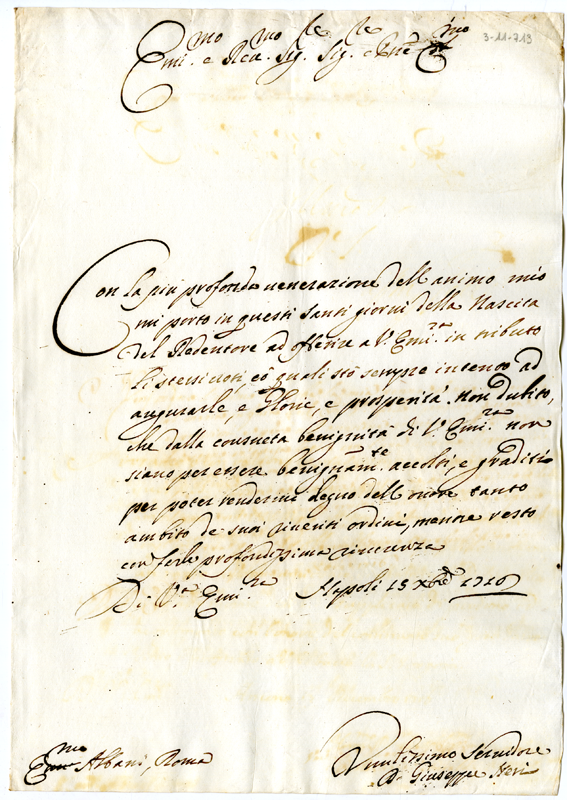 Emi.mo e Rev.mo Sig.re Sig.re e Pne
3-11-713
Con la più profonda venerazione dell'animo mio
mi porto in questi Santi giorni della Nascita
del Redentore ad offerire a V. Emi.za in tributo
li stessi voti, cō quali stò sempre intento ad
augurarle, e Glorie, e prosperità. non dubito,
che dalla consueta benignità di V. Emi.za non
siano per essere benignam.te accolti, e graditi
per poter rendermi degno dell'onore tanto
ambito de suoi riveriti ordini, mentre resto
con farle profondissima riverenza
Di V.a Emi.za Napoli 15 Xbre 1710
Em.mo Albani, Roma
Servidore
D. Giuseppe Neri